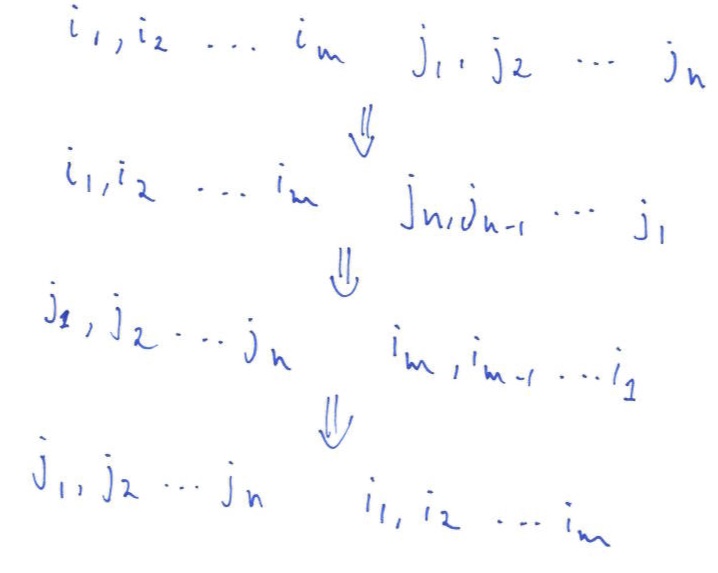 i₁, i₂ ... iₘ j₁, j₂ ... jₙ
⇓
i₁, i₂ ... iₘ jₙ, jₙ₋₁ ... j₁
⇓
j₁, j₂ ... jₙ iₘ, iₘ₋₁ ... i₁
⇓
j₁, j₂ ... jₙ i₁, i₂ ... iₘ